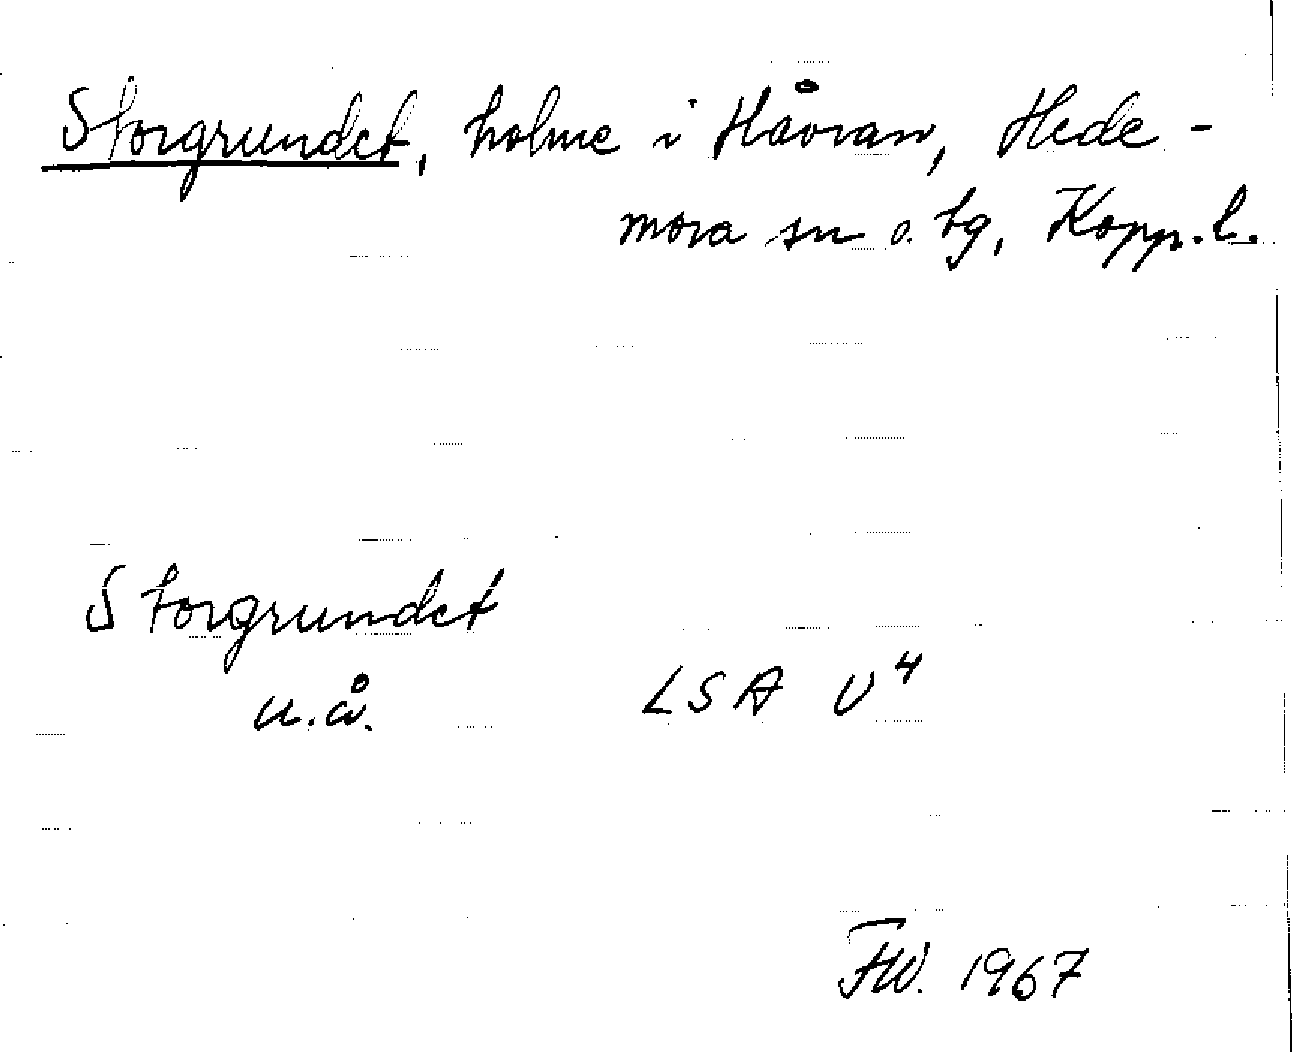 Storgrundet, holme i Håvran, Hede-
mora sn o. tg, Kopp.l.
Storgrundet
u.å. LSA U4
FW. 1967